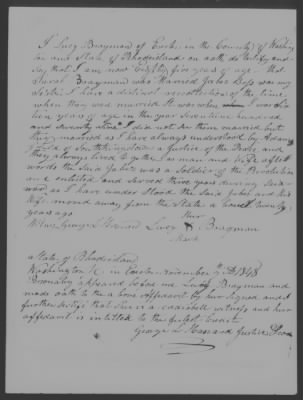 I Lucy Braymon of Exeter in the County of Washing
ton and State of Rhodeisland on oath do testify and
say that I am now Eighty five years of age - that
Sarah Braymon who Married Jabez was my
Sister I have a distinct recollection of the time
when they was married it was when I was
teen years of age in the year Seventeen hundred
and Seventy I did not see them married but
they married as I have always understood by
of South a Justice of the Peace and
they always lived to gether as man and wife after
wards the Said Jabez was a Soldier of the Revolution
and entisted and Served three years during Said
war as I have under Stood the Said Jabez and his
wife moved away from the State a bout twenty
years ago
Witness George L Hazard Lucy X Braymon
her
Mark
State of Rhodeisland
Washington Sc. in Exeter November 7th 1848
Personaly appeared before me Lucy Braymon and
made oath to the a bove Affidavit by her Signed and I
further Certify that She is a credibell witness and her
affidavit is intitled to full Credit
George L Hazard Justice Peace